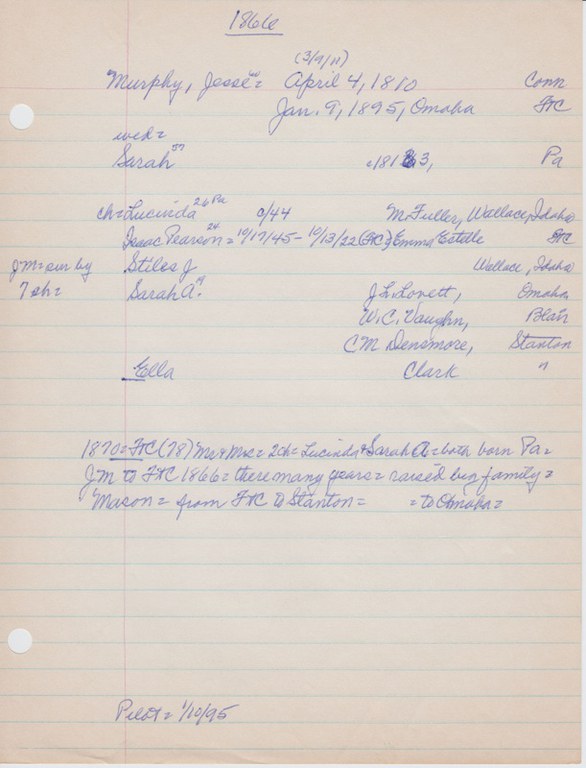 1866
(3/7/11)
Murphy, Jesse = April 4, 1810 Conn
Jan. 9, 1895, Omaha FtC
wed =
Sarah 57 c1813, Pa
ch = Lucinda 26 Pa c/44 M. Fuller, Wallace, Idaho
Isaac Pearson 24 = 10/17/45 - 10/13/22 (FtC) & Emma Estelle FtC
JM = sur by Stiles J Wallace, Idaho
7 ch = Sarah A. J. L. Lovett, Omaha
W. C. Vaughn, Blair
C M Densmore, Stanton
Ella Clark "
1870 = FtC (78) Mr & Mrs = 2 ch = Lucinda & Sarah A = both born Pa =
JM to FtC 1866 = there many years = raised big family =
Mason = from FtC to Stanton = = to Omaha =
Pilot = 1/10/95